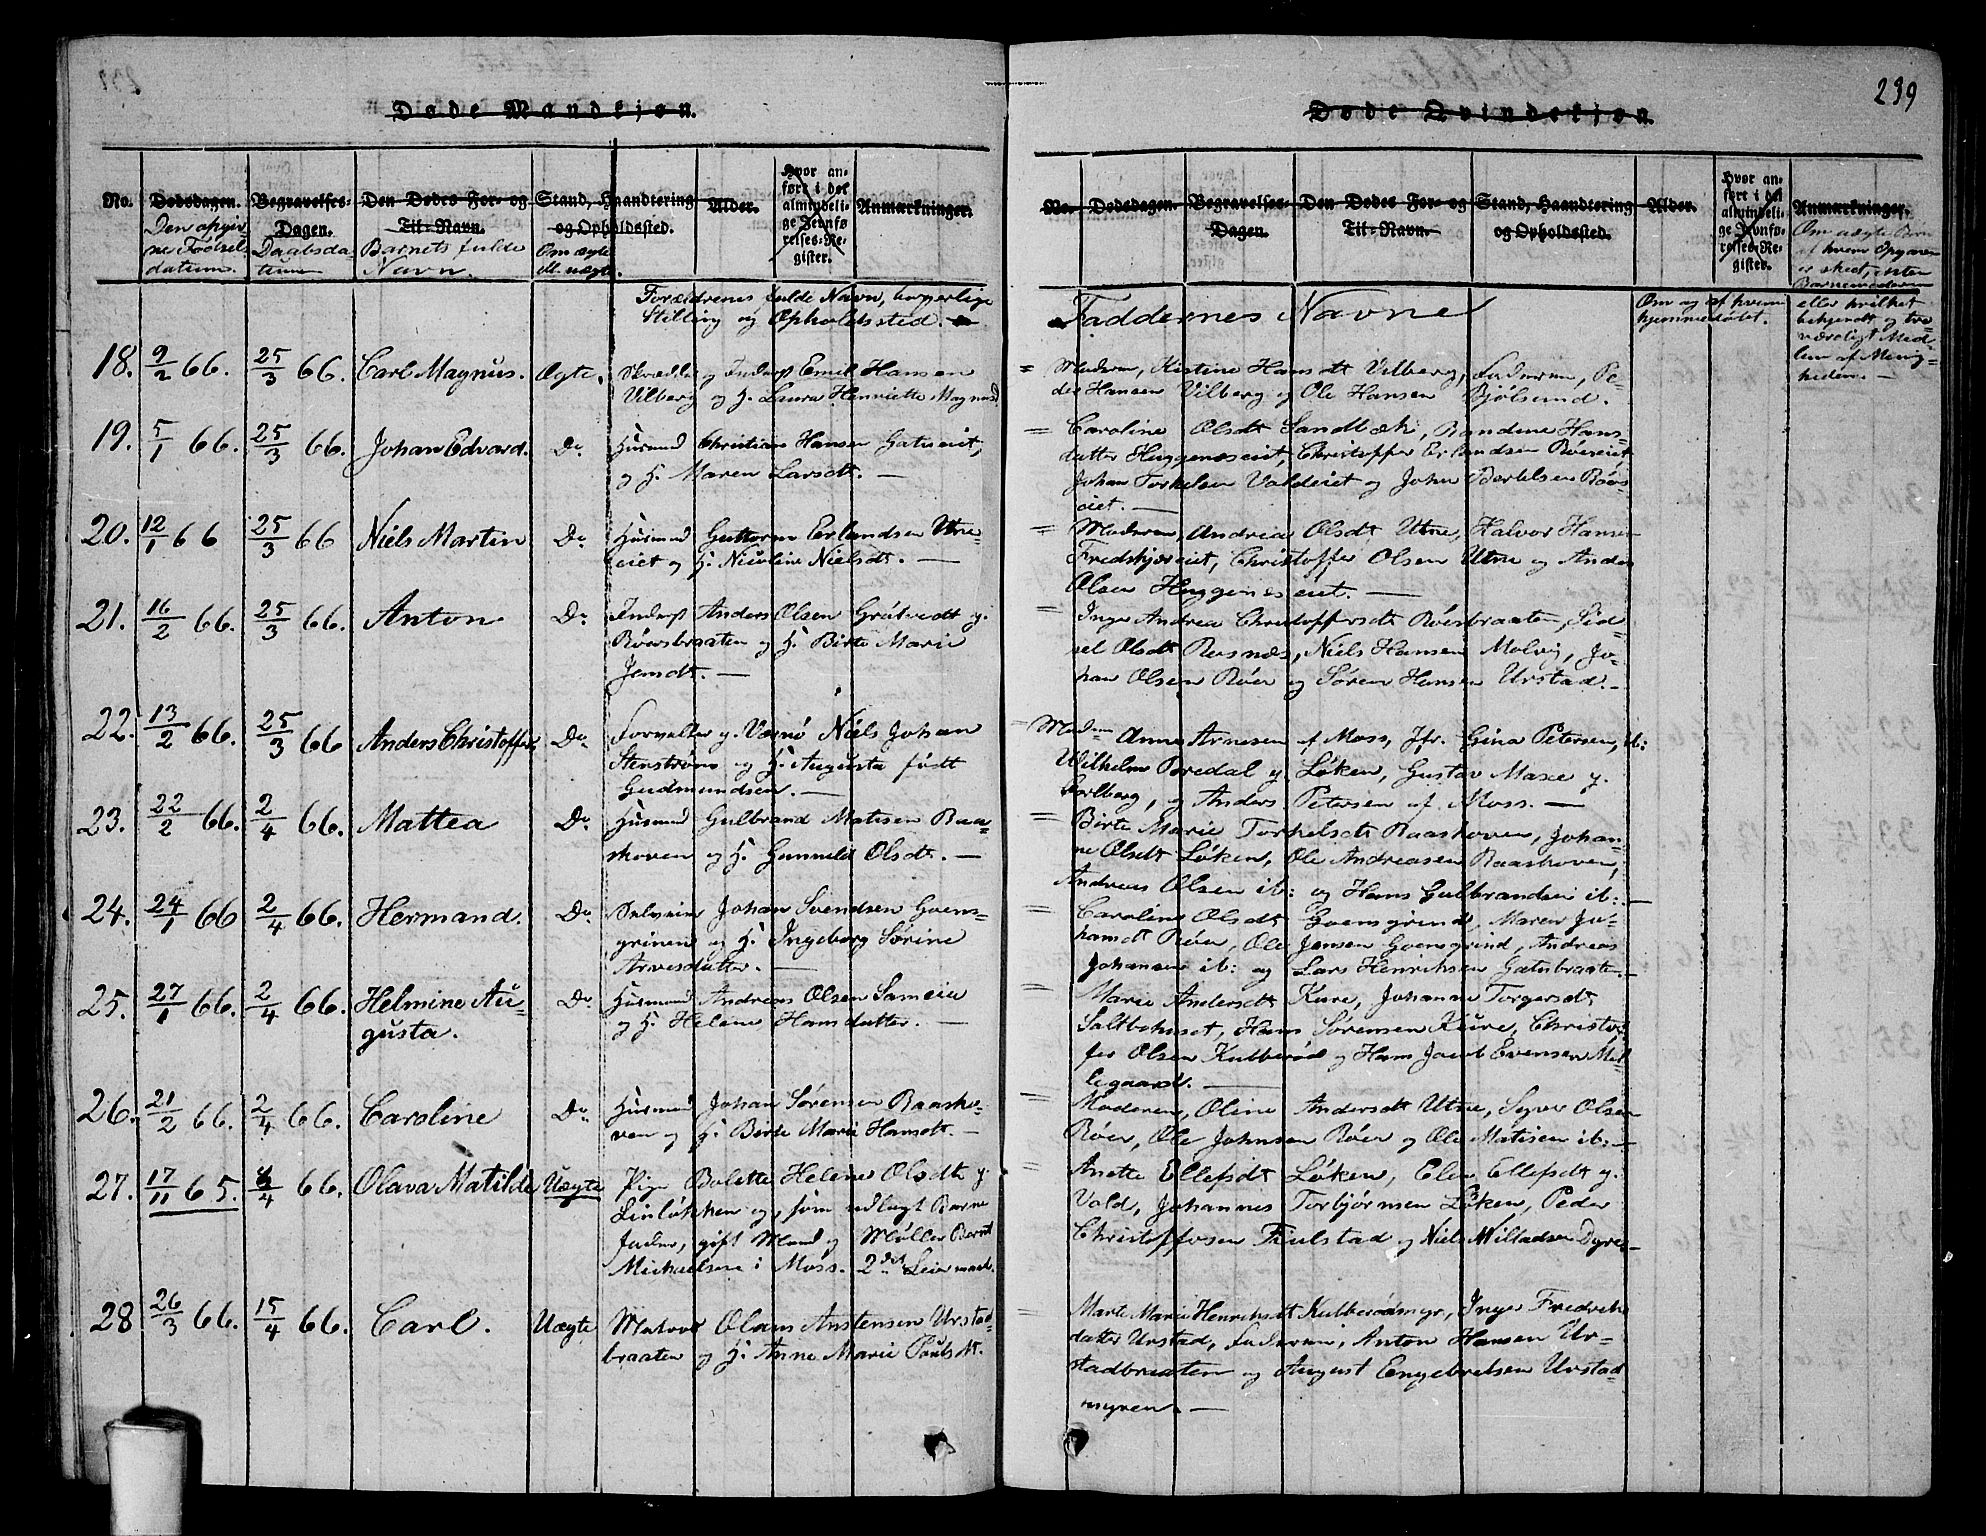 239
Døde Mandkjøn.
No.
Dødsdagen.
Begravelses-
Dagen.
Den Dødes For- og
Til-Navn.
Stand, Haandtering
og Opholdssted.
Alder.
Hvor an-
ført i det
almindeli-
ge Jevnfø
relses-Re-
gister.
Anmærkninger.
Den opgiv
ne Fødsels
datum.
Daabsda
tum
Barnets fulde
Navn.
Om ægte
ell. uægte.
Forældrenes fulde Navn, borgerlige
Stilling og Opholdssted.
18. 9/2 66. 25/3 66. Carl Magnus. Ægte. Skrædder og Inderst Emil Hansen
Vilberg og H. Laura Henriette Magnusd
19. 5/1 66. 25/3 66. Johan Edvard. Do. Husmd Christian Hansen Gatueiet,
og H. Maren Larsdt. —
20. 12/1 66 25/3 66 Niels Martin Do. Husmd Guttorm Erlandsen Utne-
eiet og H. Nicoline Nielsdt. —
21. 16/2 66. 25/3 66. Anton Do. Inderst Anders Olsen Grátvedt g.
Rörsbraaten og H. Birte Marie
Jensdt. —
22. 13/2 66. 25/3 66 Anders Christoffer Do. Forvalter g. Værnø Niels Johan
Stenstrøm og H. Augusta født
Gudmundsen. —
23. 22/2 66. 2/4 66. Mattea Do. Husmd Gulbrand Matisen Raa-
skoven og H. Gunnild Olsdt. —
24. 24/1 66 2/4 66. Hermand. Do. Selveier Johan Svendsen Goens-
grinen og H. Ingeborg Sørine
Arnesdatter. —
25. 27/1 66. 2/4 66. Helmine Au-
gusta. Do. Husmand Andreas Olsen Sameie
og H. Helene Hansdatter. —
26. 21/2 66. 2/4 66. Caroline Do. Husmd Johan Sørensen Raasko-
ven og H. Birte Marie Hansdt. —
27. 17/11 65. /4 66. Olava Matilde Uægte Pige Bolette Helene Olsdt g.
Linløkken og, som udlagt Barne
fader, gift Mand og Müller Bernt
Michaelsen i Moss. 2det Leiermaal.
28 26/3 66. 15/4 66. Carl. Uægte Matros Olaus Anstensen Urstad-
braaten og H. Anne Marie Poulsdt.
Døde Qvindekjøn.
No.
Dødsdagen.
Begravelses-
Dagen.
Den Dødes For- og
Til-Navn.
Stand, Haandtering
og Opholdssted.
Alder.
Hvor an-
ført i det
almindeli-
ge Jevnfø-
relses-Re-
gister.
Anmærkninger.
Om uægte Barn
af hvem Opgaven
er skeet, enten
Barnemoderen
eller hvilket
bekjendt og tro-
værdigt Med-
lem af Menig-
heden. —
Faddernes Navne
Om og af hvem
hjemmedøbt.
= Moderen, Kistine Hansdt Vilberg, Faderen, Pe-
der Hansen Vilberg og Ole Hansen Bjölsund.
= Caroline Olsdt Sandbæk, Randine Hans-
datter Huggenæseiet, Christoffer Erlandsen Röreiet
Johan Torkelsen Valdeiet og John Bertelsen Rörs-
eiet. —
= Moderen, Andrea Olsdt Utne, Halvor Hansen
Fredskjæreiet, Christoffer Olsen Utne og Anders
Olsen Huggenæseiet. —
= Inge Andrea Christoffersdt Rörsbraaten, Sid-
sel Olsdt Rosnæs, Niels Hansen Molvig, Jo-
han Olsen Röer og Sören Hansen Urstad. —
= Madam Anne Arnesen af Moss, Jfr. Gina Petersen, ib:
Wilhelm Bredal g. Løken, Gustav Maxe g.
Carlberg, og Anders Petersen af Moss. —
= Birte Marie Torkelsdt Raaskoven, Johan-
ne Olsdt Løken, Ole Andreasen Raaskoven,
Andreas Olsen ib: og Hans Gulbrandsen ib: —
= Caroline Olsdt Goensgrind, Maren Jo-
hansdt Röer, Ole Jensen Goensgrind, Andreas
Johansen ib: og Lars Henrichsen Gatubraaten.
= Marie Andersdt Kure, Johanne Torgersdt
Saltbohuset, Hans Sørensen Kure, Christof
fer Olsen Kulberød og Hans Jacob Evensen Mel-
legaard. —
= Moderen, Oline Andersdt Utne, Syver Olsen
Röer, Ole Johnsen Röer og Ole Matisen ib: —
= Anette Ellefsdt Løken, Elen Ellefsdt g.
Vold, Johannes Torbjörnsen Løken, Peder
Christoffersen Fiulstad og Niels Miltadsen Dyre-
= Marte Marie Henrichsdt Kulberødmyr, Inger Fredrichs
datter Urstad, Faderen, Anton Hansen Ur-
stadbraaten og August Engebretsen Urstad
myren. —